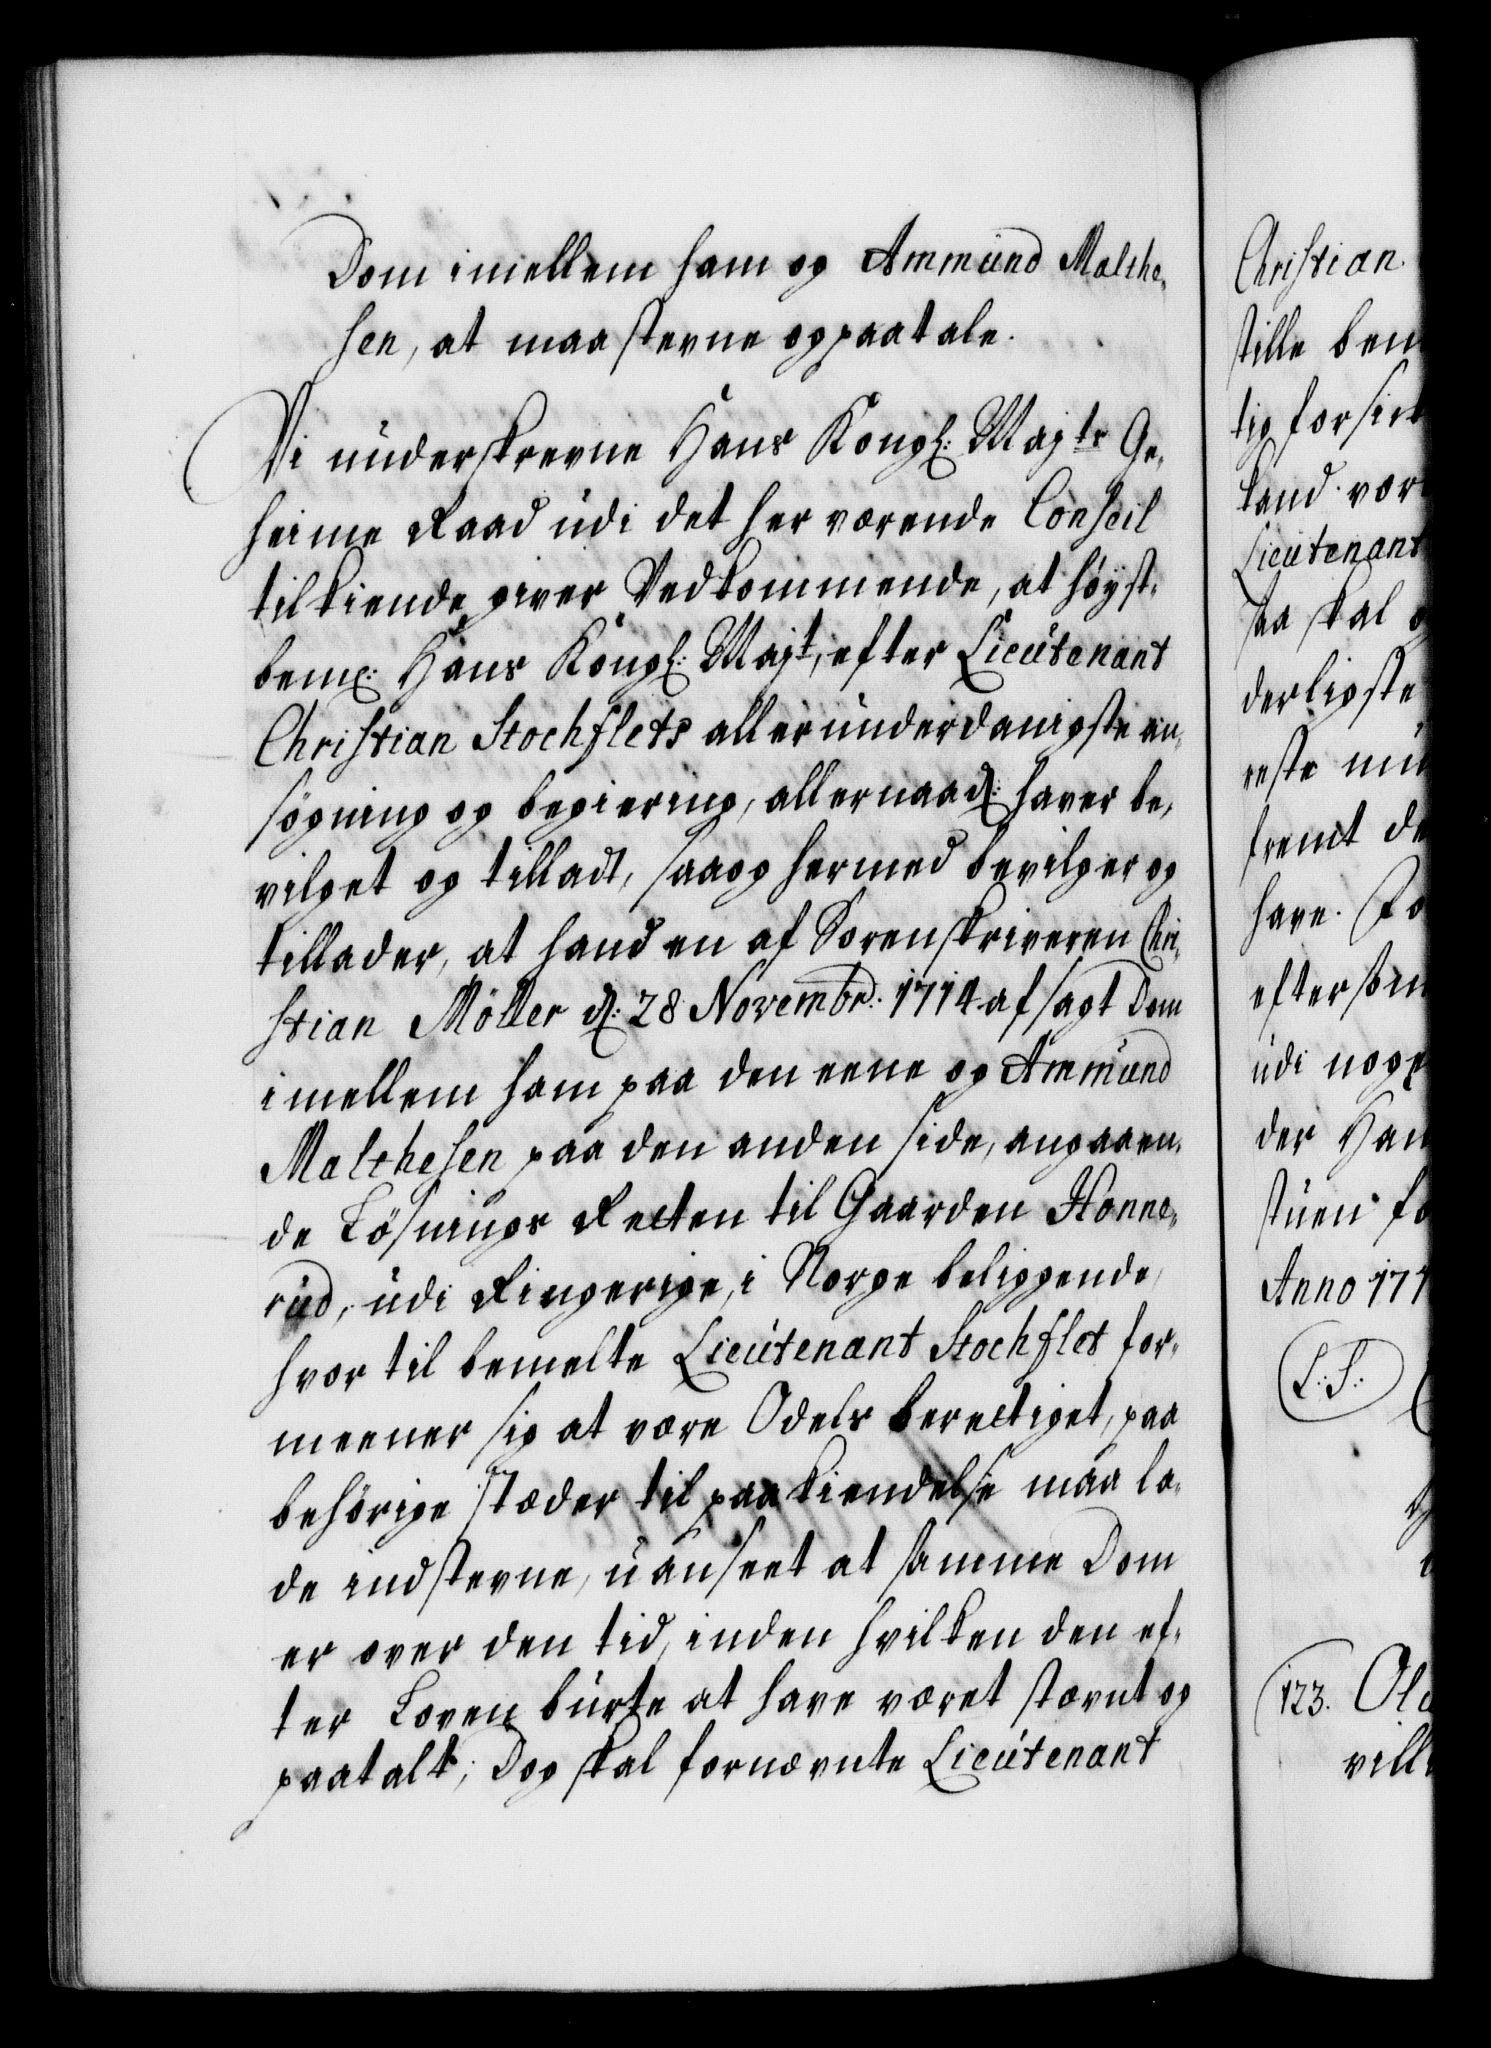 Dom imellem ham og Ammund Malthe,
sen, at maa stevne og paatale.
Vi underskrevne Hans Kongl: Majts Ge,
heime Raad udi det her værende Conseil
tilkiende giver Vedkommende, at høyst,
bemt: Hans Kongl: Majt, efter Lieutenant
Christian Stochflets allerunderdanigste an,
søgning og begiering, allernaadl: haver be,
vilget og tilladt, saa og hermed bevilger og
tillader, at hand en af Sorenskriveren Chri,
stian Möller d: 28 Novembr: 1714 afsagt Dom
imellem ham paa den eene og Ammund
Malthesen paa den anden side, angaaen,
de Løsnings Retten til Gaarden Honne,
rud, udi Ringerige, i Norge beliggende,
hvor til bemelte Lieutenant Stochflet for,
meener sig at være Odels berettiget, paa
behørige stæder til paakiendelse maa la,
de indstevne, uanseet at samme Dom
er over den tid, inden hvilken den ef,
ter Loven burte at have været stævnt og
paatalt; Dog skal fornævnte Lieutenant
Christian
stille ben
tig for sin
kand vær
Lieutenant
saa skal
derligste
este
fremt de
have. Fo
efter
udi noge
der Han
stuen fo
Anno 171
L: S:
123. Ole
vill